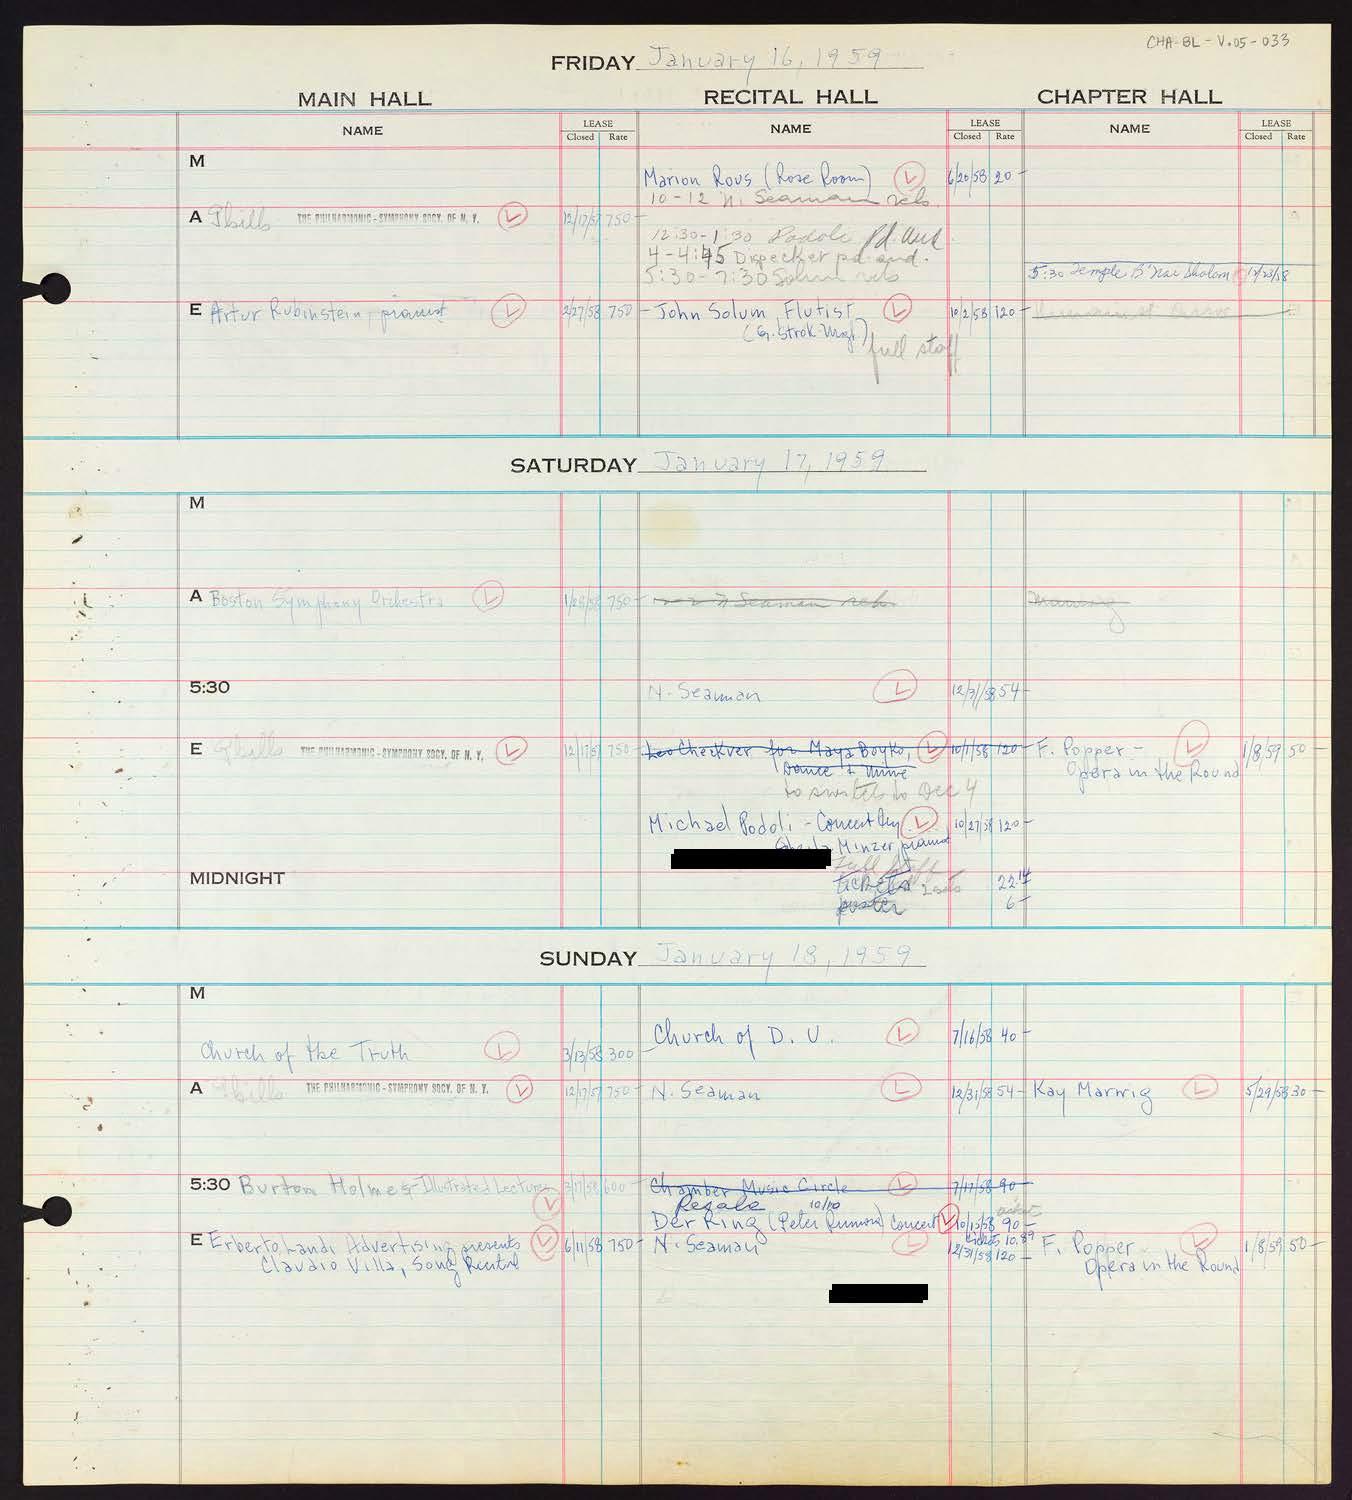 CHA-BL-V.05-033
FRIDAY January 16, 1959
MAIN HALL RECITAL HALL CHAPTER HALL
NAME LEASE Closed Rate NAME LEASE Closed Rate NAME LEASE Closed Rate
M
Marion Rous (Rose Room) L 6/20/58 20-
10-12 N. Seaman reh.
A 9bills THE PHILHARMONIC-SYMPHONY SOCY. OF N. Y. L 12/17/57 750-
12:30-1:30 Podoli pd. aud.
4-4:45 Dispecker pd. aud.
5:30-7:30 Solum reh
5:30 Temple B'Nai Sholom 12/23/58
E Artur Rubinstein, pianist L 2/27/58 750- John Solum, Flutist L 10/2/58 120-
(G. Strok-Mgr.)
full staff
SATURDAY January 17, 1959
M
A Boston Symphony Orchestra L 1/28/58 750- N Seaman reh.
5:30 N. Seaman L 12/31/58 54-
E THE PHILHARMONIC-SYMPHONY SOCY. OF N. Y. L 12/17/57 750- Leo Checkver for Maya Boyko, L 10/1/58 120- F. Popper- L 1/8/59 50-
Dance & Mime Opera in the Round
to switch to Dec 4
Michael Podoli - Concert L 10/27/58 120-
Sheila Minzer, pianist
full staff
MIDNIGHT
tickets 22.14
poster 6-
SUNDAY January 18, 1959
M
Church of D. U. L 7/16/58 40-
Church of the Truth L 3/13/58 300-
A THE PHILHARMONIC-SYMPHONY SOCY. OF N. Y. L 12/17/57 750- N. Seaman L 12/31/58 54- Kay Marwig L 5/29/58 30-
5:30 Burton Holmes-Illustrated Lectures L 3/17/58 600- Chamber Music Circle L 7/17/58 90-
Resale 10/10
Der Ring (Peter) Concert L 10/15/58 90-
tickets 10.89
E Erberto Landi Advertising presents L 6/11/58 750- N. Seaman L 12/31/58 120- F. Popper L 1/8/59 50-
Claudio Villa, Song Recital Opera in the Round